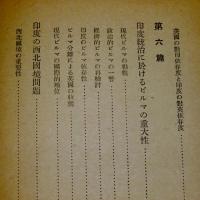 英國の對印依存度と印度の對英依存度
第六篇
印度統治に於けるビルマの重大性
現代ビルマの動態
政治的ビルマの一瞥
經濟的ビルマの再檢討
印度のビルマ依存性
ビルマ分離による英國の收穫
現代ビルマの國際的地位
印度の西北國境問題
西北國境の重要性